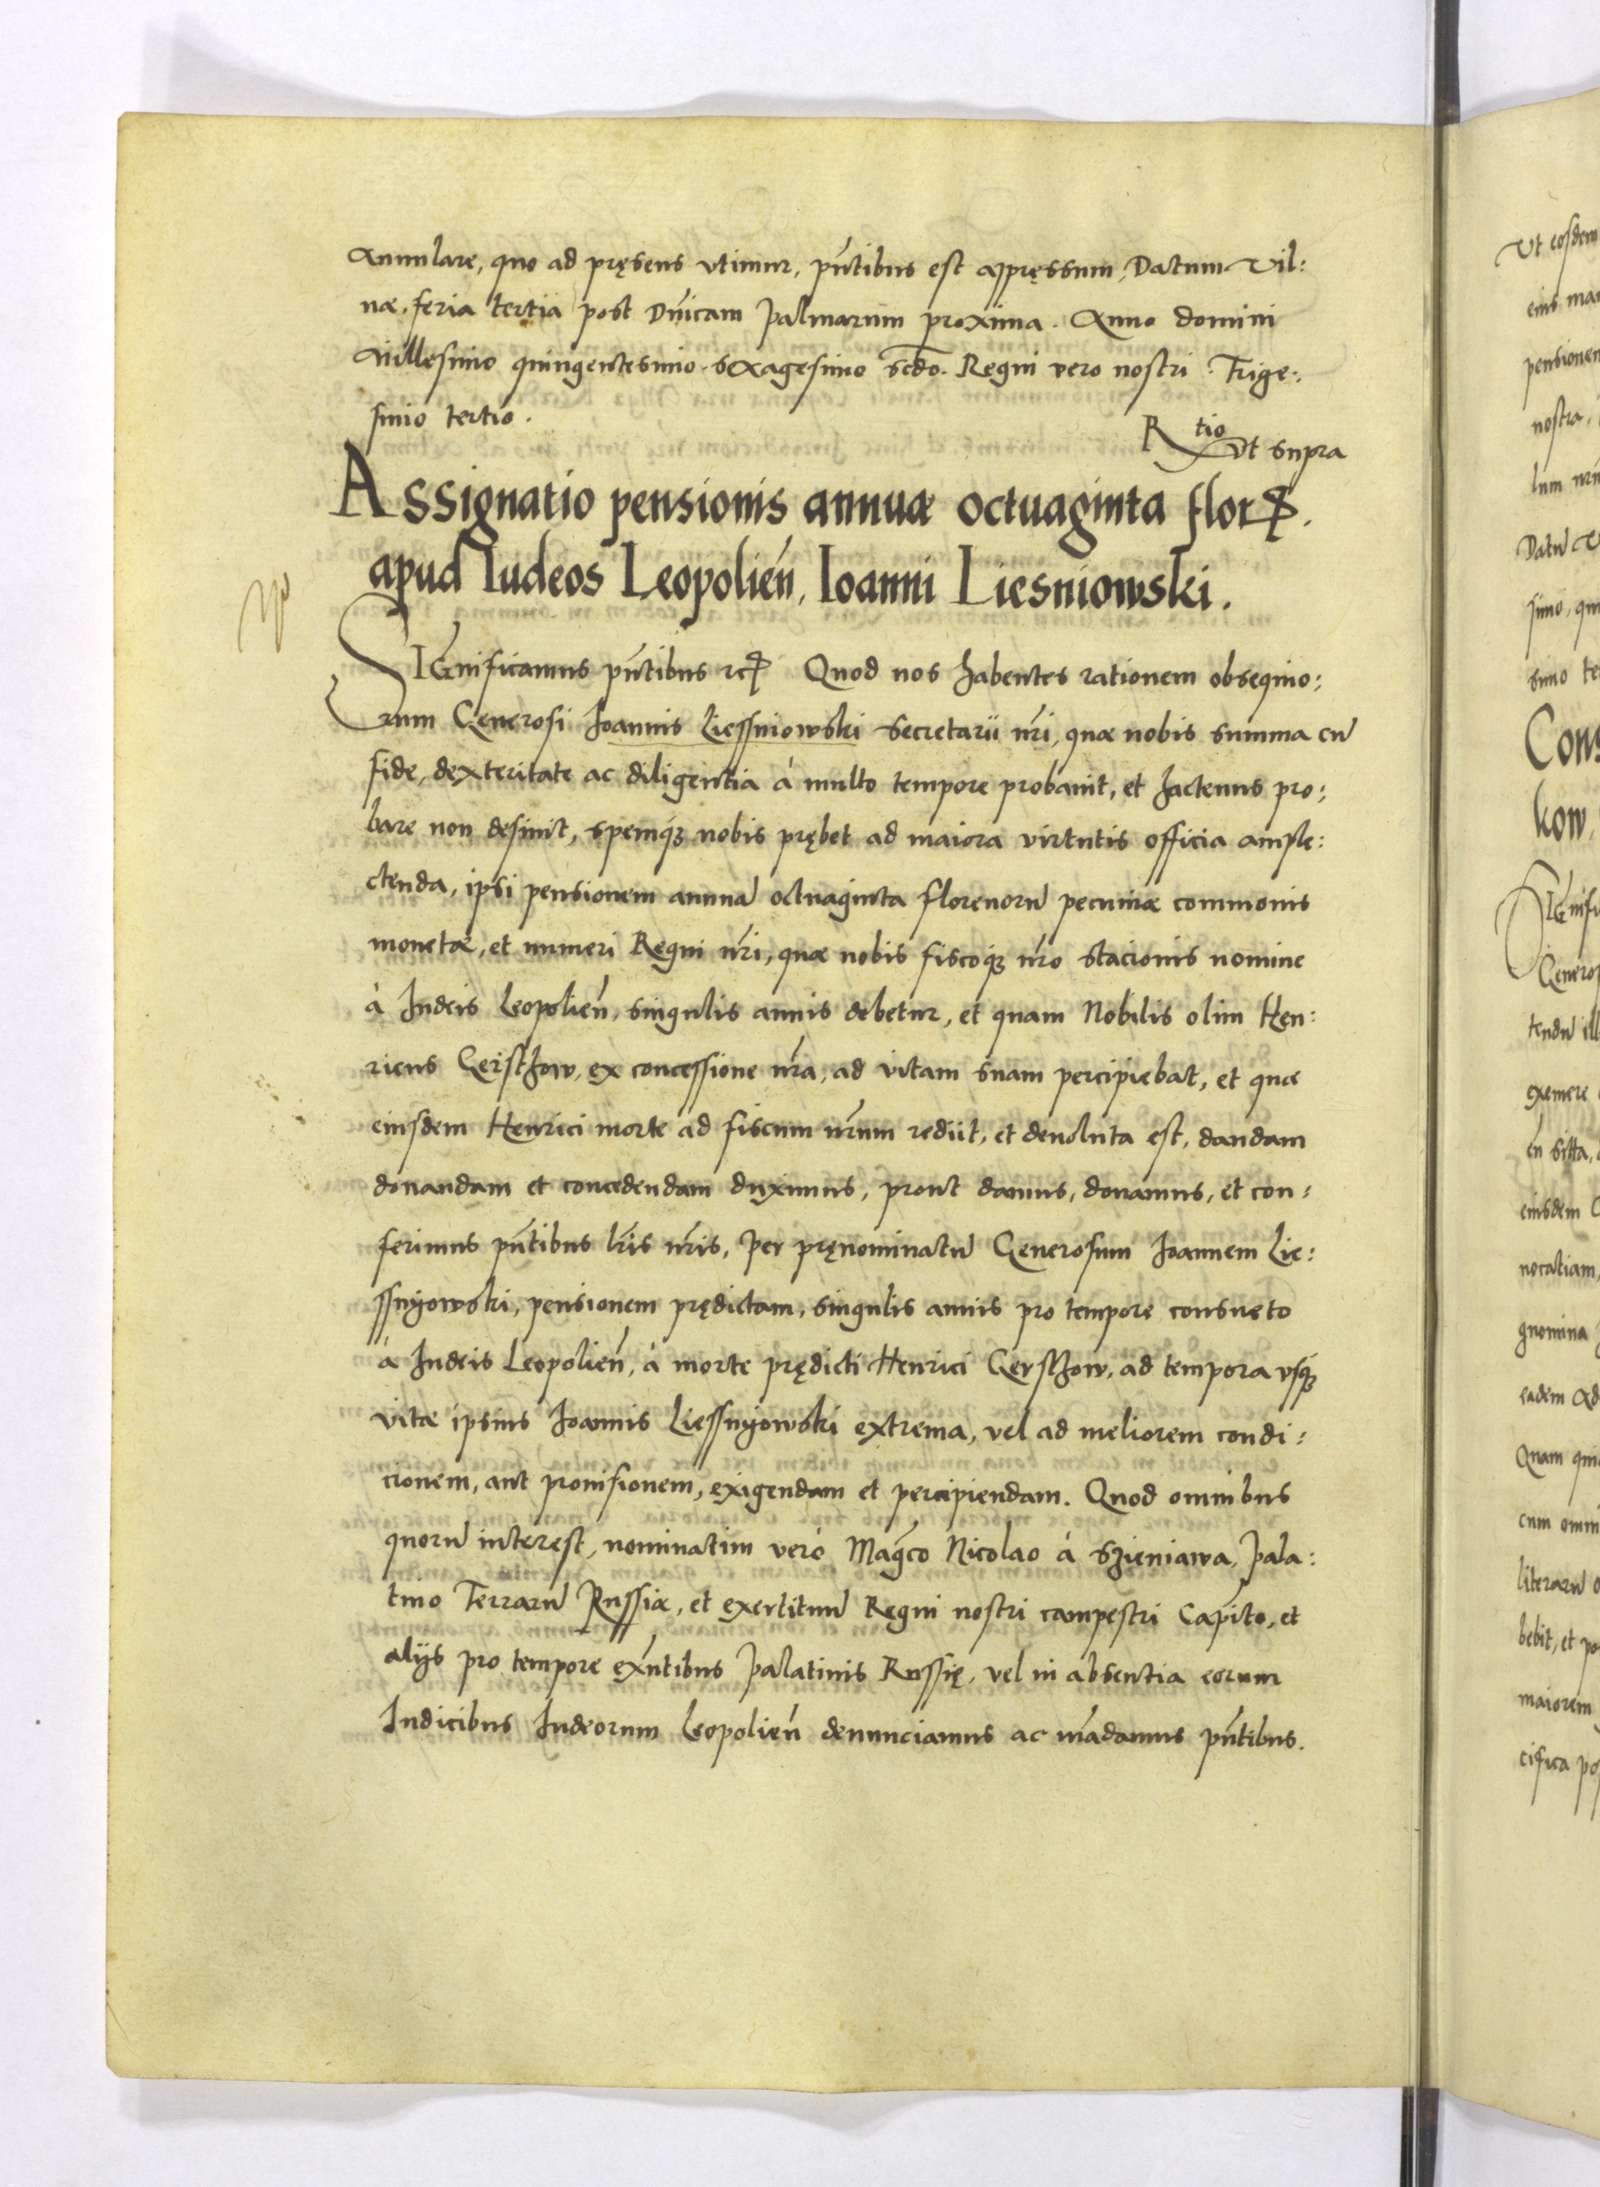 Annulare, quo ad pręsens vtimur, pn̄tibus est appręssum, Datum Vil:
næ, feria tertia post Dn̄icam Palmarum proxima. Anno domini
Millesimo quingentesimo sexagesimo scdo. Regni vero nostri Trige:
simo tertio.
Rtio vt supra
Assignatio pensionis annuæ octuaginta flor.
apud Iudeos Leopolien̄, Ioanni Liesniowski.
SIGnificamus pn̄tibus etc. Quod nos habentes rationem obsequio:
rum Generosi Joannis Liessniowski Secretarii nr̄i, quæ nobis summa cū
fide, dexteritate ac diligentia à multo tempore probauit, et hactenus pro:
bare non desinit, spemq̨ nobis prębet ad maiora virtutis officia ample:
ctenda, ipsi pensionem annuā octuaginta florenorū pecuniæ communis
monetæ, et numeri Regni nr̄i, quæ nobis fiscoq̨ nr̄o stacionis nomine
à Judeis Leopolien̄, singulis annis debetur, et quam Nobilis olim Hen:
ricus Gersthow, ex concessione nr̄a, ad vitam suam percipiebat, et quæ
eiusdem Henrici morte ad fiscum nr̄um rediit, et deuoluta est, dandam
donandam et concedendam duximus, prout damus, donamus, et con:
ferimus pn̄tibus lr̄is nr̄is, per pręnominatū Generosum Joannem Lie:
ssnyowski, pensionem prędictam, singulis annis pro tempore consueto
à Judeis Leopolien̄, à morte prędicti Henrici Gersthow, ad tempora vsq̨
vitæ ipsius Joannis Liessnyowski extrema, vel ad meliorem condi:
cionem, aut prouisionem, exigendam et percipiendam. Quod omnibus
quorū interest, nominatim verò Magco Nicolao à Szieniawa, Pala:
tino Terrarū Russiæ, et exercituū Regni nostri campestri Capito, et
alijs pro tempore exn̄tibus Palatinis Russię, vel in absentia eorum
Iudicibus Iudeorum Leopolien̄ denunciamus ac mādamus pn̄tibus.
Vt eosdem
eius
pensionem
nostra,
Datū
simo, qui
simo
Cons
kow,
SIGnifi
Generos
tendū ill
exemere
eiusdem
uocatiam,
gnomina
eadem
Quam
cum omni
literarū
bebit, et
maiorem
cifica